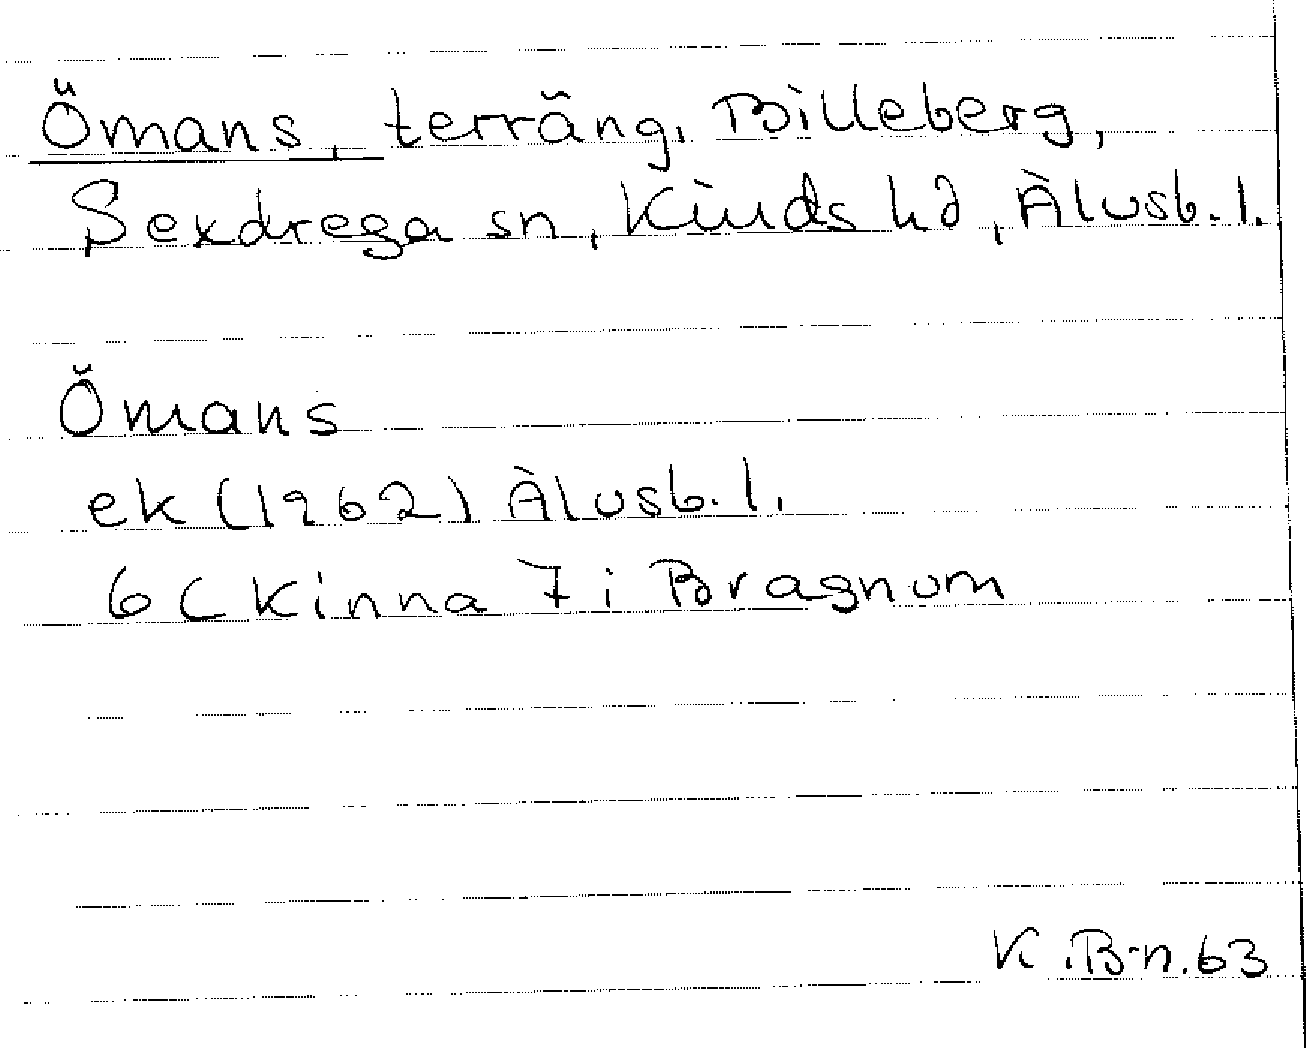 Ömans, terräng. Billeberg,
Sexdrega sn, Kinds hd, Älvsb. l.
Ömans
ek (1962) Älvsb. l.
6 C Kinna 7 i Bragnum
K. B-n. 63